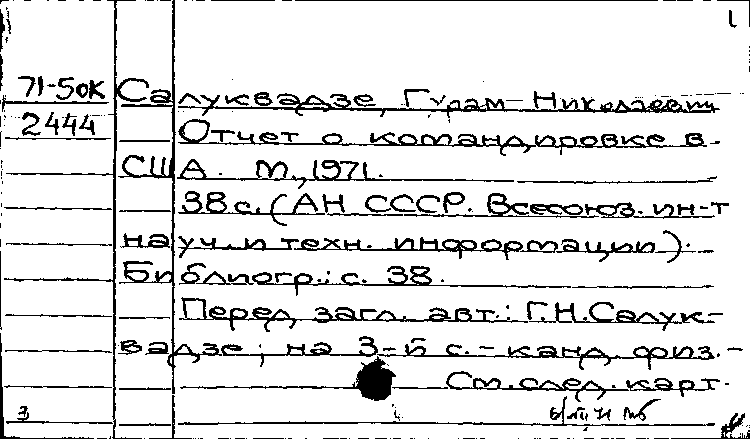 1
71-5ок Салуквадзе, Гурам Николаевич
2444 Отчет о командировке в
США. М., 1971.
38 с. (АН СССР. Всесоюз. ин-т
науч. и техн. информации).
Библиогр.: с. 38.
Перед загл. авт.: Г.Н. Салук-
вадзе; на 3-й с. - канд. физ.-
См. след. карт.
3